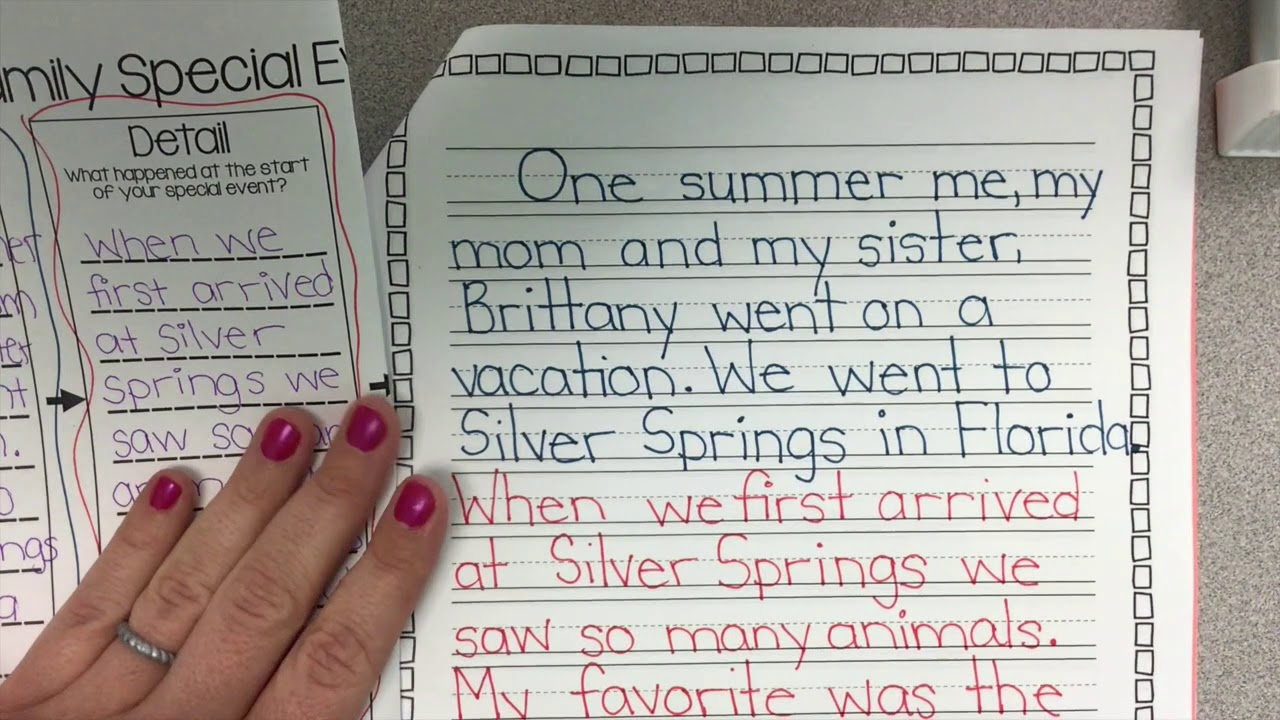 mily Special Ev
Detail
What happened at the start
of your special event?
When we
first arrived
at Silver
springs we
saw so
One summer me, my
mom and my sister,
Brittany went on a
vacation. We went to
Silver Springs in Florida.
When we first arrived
at Silver Springs we
saw so many animals.
My favorite was the